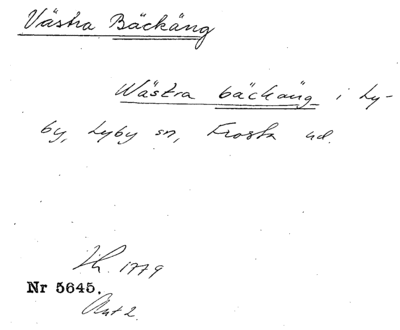 Västra Bäckäng
Wästra bäckäng i Ly-
by, Lyby sn, Frosta hd.
Lh. 1779
Nr 5645.
Akt 2.